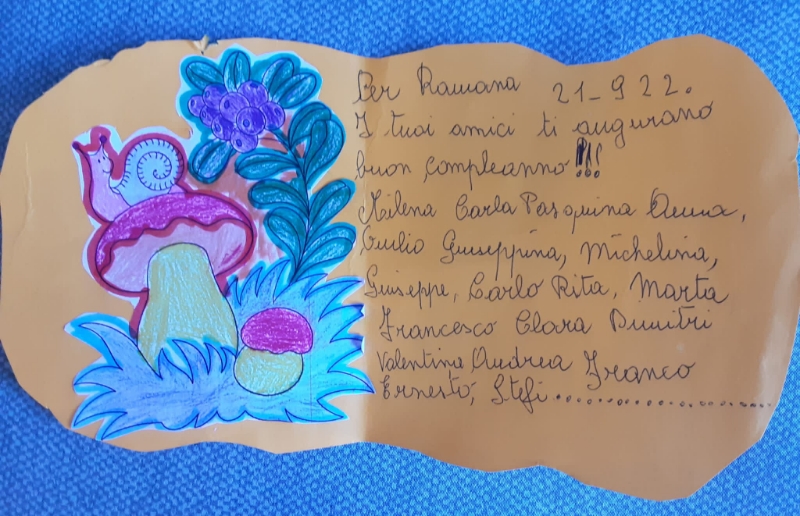 Per Ramana 21-9 22.
I tuoi amici ti augurano
buon compleanno!!!
Milena Carla Pasquina Anna,
Giulio Giuseppina, Michelina,
Giuseppe, Carlo Rita, Marta
Francesco Clara Dimitri
Valentina Andrea Franco
Ernesto, Stefi....................